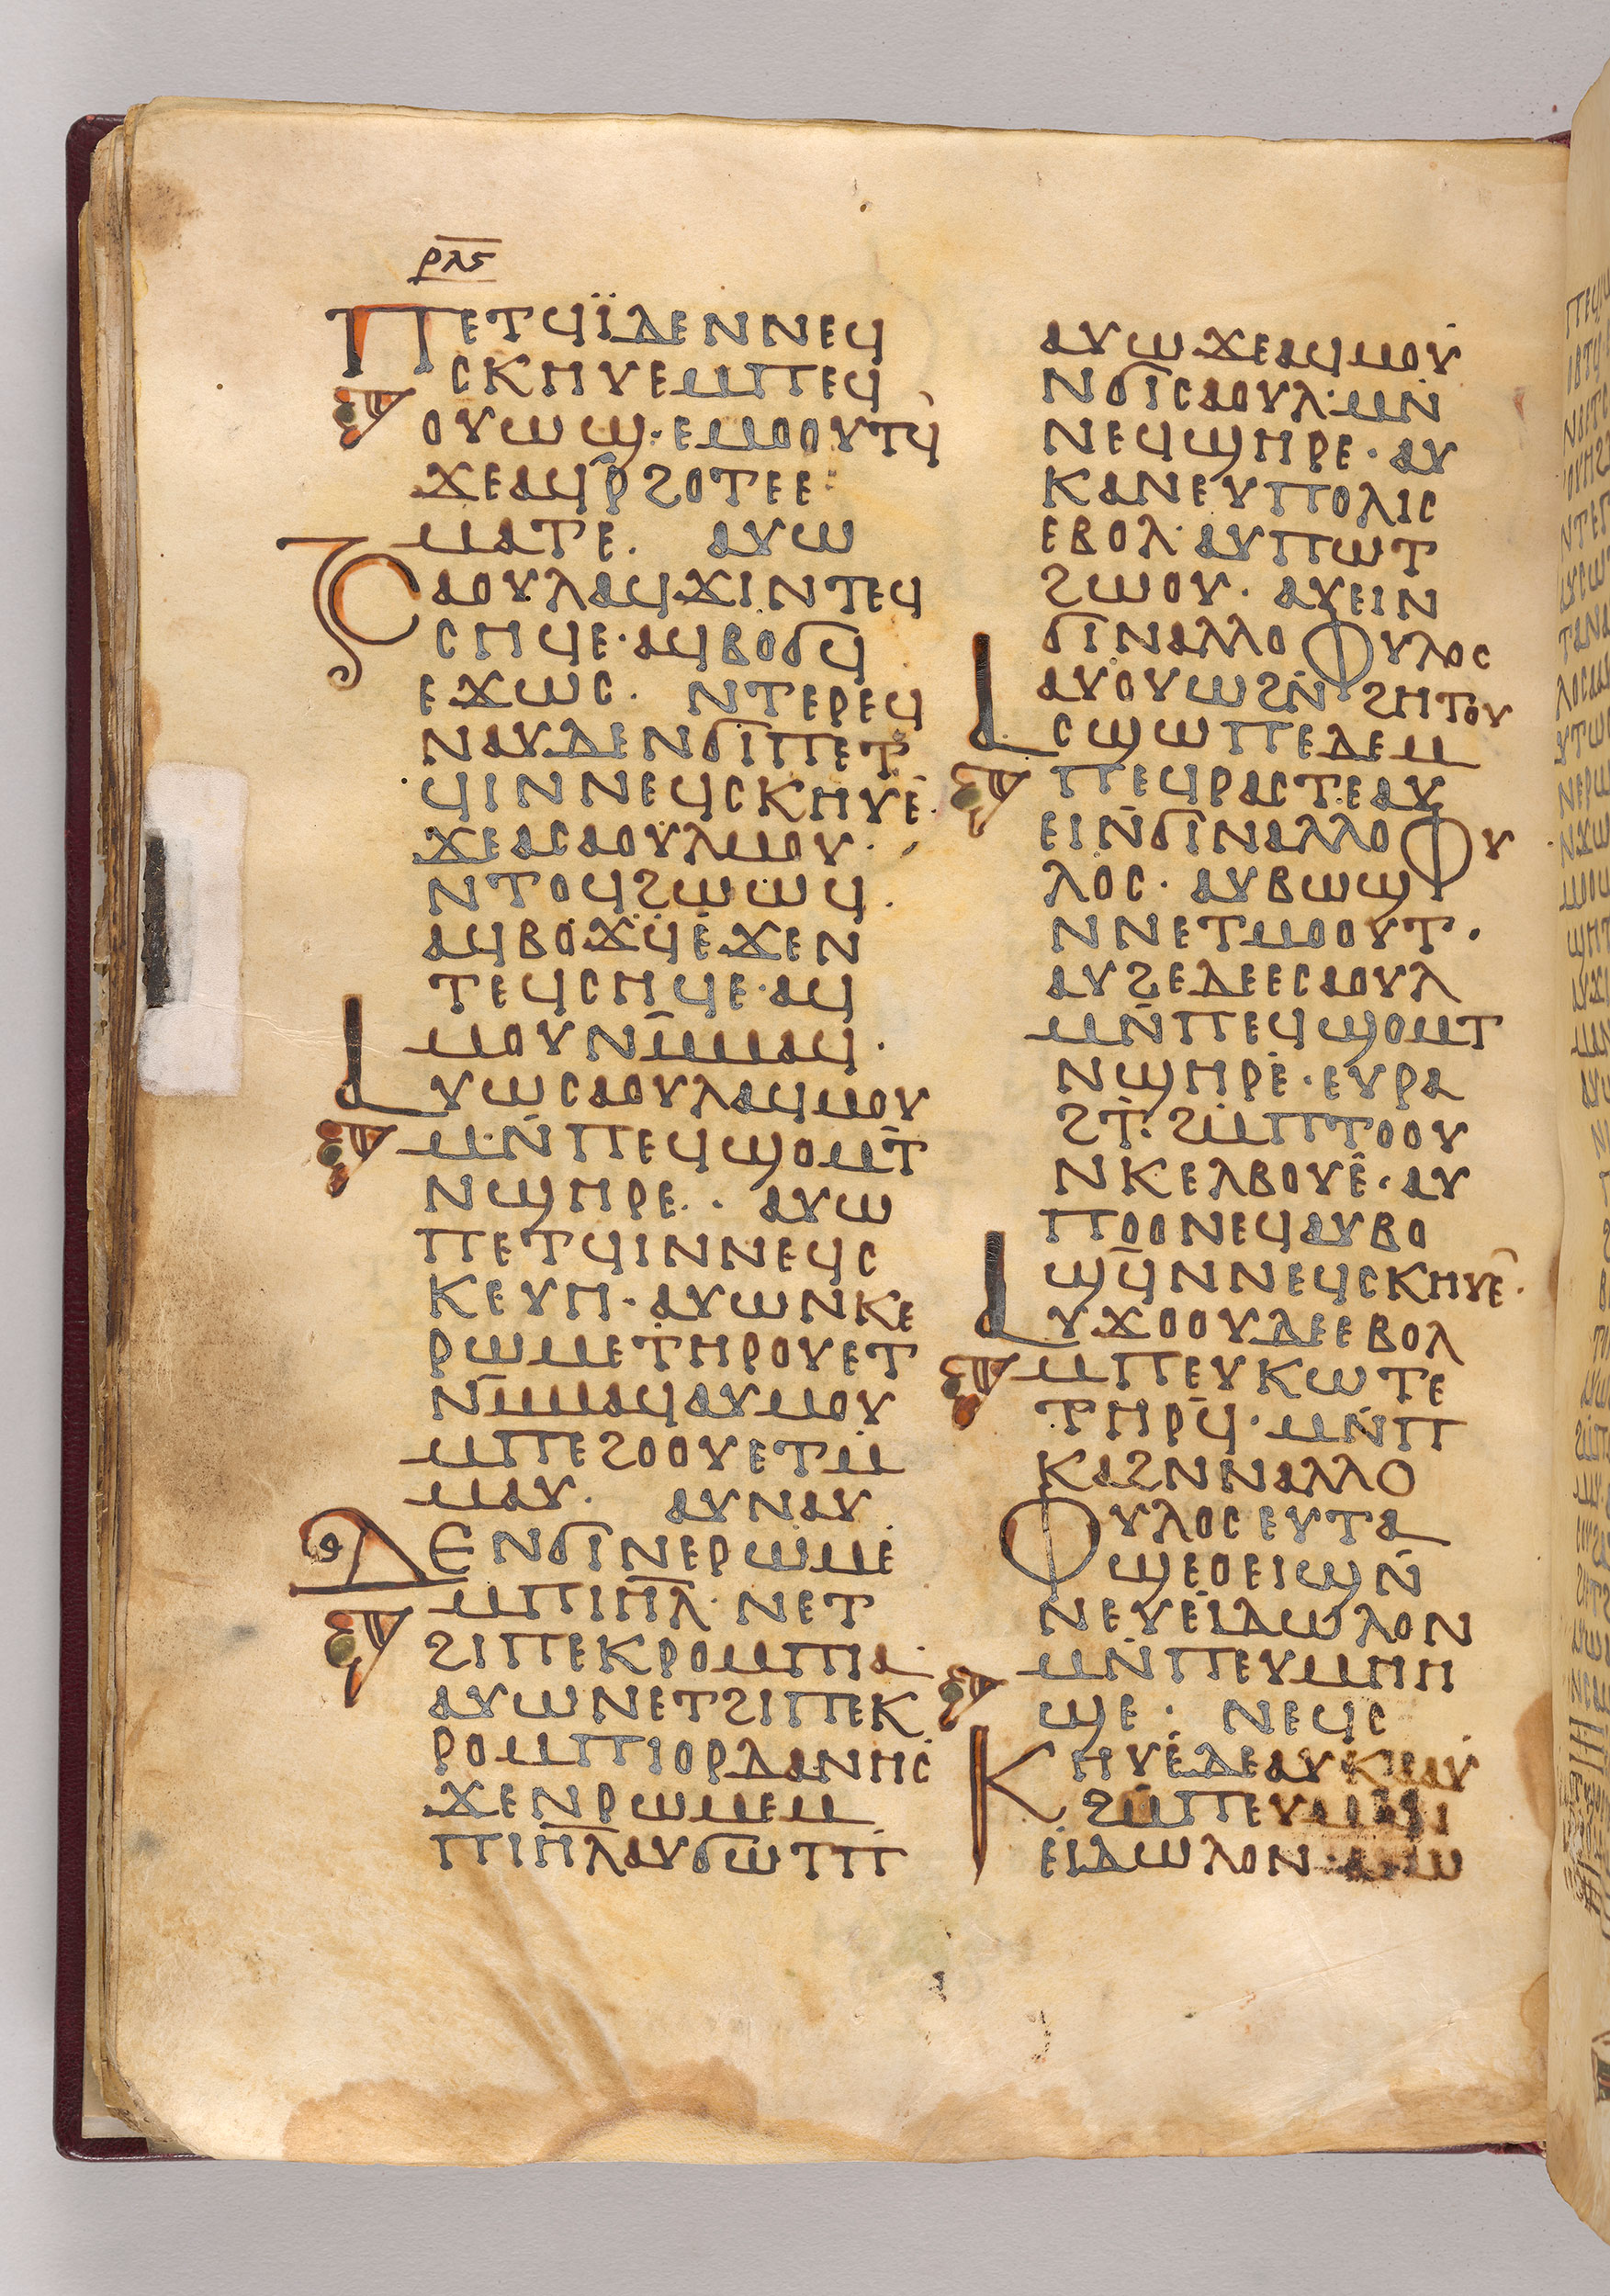 ⲣⲗⲋ
ⲡⲉⲧϥⲓ̈ⲇⲉⲛⲛⲉϥ
ⲥⲕⲏⲩⲉⲙⲡⲉϥ
ⲟⲩⲱϣ·ⲉⲙⲟⲟⲩⲧϥ̄
ϫⲉⲁϥⲣ̄ϩⲟⲧⲉⲉ
ⲙⲁⲧⲉ. ⲁⲩⲱ
ⲥⲁⲟⲩⲗⲁϥϫⲓⲛⲧⲉϥ
ⲥⲏϥⲉ·ⲁϥⲃⲟϭϥ
ⲉϫⲱⲥ. ⲛⲧⲉⲣⲉϥ
ⲛⲁⲩⲇⲉⲛϭⲓⲡⲉⲧ
ϥⲓⲛⲛⲉϥⲥⲕⲏⲩⲉ̇.
ϫⲉⲁⲥⲁⲟⲩⲗⲙⲟⲩ·
ⲛⲧⲟϥϩⲱⲱϥ.
ⲁϥⲃⲟϫϥⲉ̇ϫⲉⲛ
ⲧⲉϥⲥⲏϥⲉ·ⲁϥ
ⲙⲟⲩⲛⲙ̄ⲙⲁϥ·
ⲁⲩⲱⲥⲁⲟⲩⲗⲁϥⲙⲟⲩ
ⲙⲛ̇ⲡⲉϥϣⲟⲙⲧ̇
ⲛϣⲏⲣⲉ·. ⲁⲩⲱ
ⲡⲉⲧϥⲓⲛⲛⲉϥⲥ
ⲕⲉⲩⲏ·ⲁⲩⲱⲛⲕⲉ
ⲣⲱⲙⲉⲧⲏⲣⲟⲩⲉⲧ
ⲛⲙ̄ⲙⲁϥⲁⲩⲙⲟⲩ
ⲙⲡⲉϩⲟⲟⲩⲉⲧⲙ̇
ⲙⲁⲩ. ⲁⲩⲛⲁⲩ
ⲇⲉⲛϭⲓⲛⲉⲣⲱⲙⲉ̇
ⲙⲡⲓⲏ̄ⲗ·ⲛⲉⲧ
ϩⲓⲡⲉⲕⲣⲟⲙⲡⲓⲁ
ⲁⲩⲱⲛⲉⲧϩⲓⲡⲉⲕ
ⲣⲟⲙⲡⲓⲟⲣⲇⲁⲛⲏⲥ
ϫⲉⲛⲣⲱⲙⲉⲙ
ⲡⲓⲏ̄ⲗⲁⲩϭⲱⲧⲡ̇
ⲁⲩⲱϫⲉⲁϥⲙⲟⲩ
ⲛϭⲓⲥⲁⲟⲩⲗ·ⲙⲛ̇
ⲛⲉϥϣⲏⲣⲉ·ⲁⲩ
ⲕⲁⲛⲉⲩⲡⲟⲗⲓⲥ
ⲉⲃⲟⲗ·ⲁⲩⲡⲱⲧ
ϩⲱⲟⲩ. ⲁⲩⲉⲓⲛ
ϭⲓⲛⲁⲗⲗⲟⲫⲩⲗⲟⲥ
ⲁⲩⲟⲩⲱϩⲛ̇ϩⲏⲧⲟⲩ
ⲁⲥϣⲱⲡⲉⲇⲉⲙ
ⲡⲉϥⲣⲁⲥⲧⲉⲁⲩ
ⲉⲓⲛ̇ϭⲓⲛⲁⲗⲗⲟⲫⲩ
ⲗⲟⲥ·ⲁⲩⲃⲱϣ
ⲛⲛⲉⲧⲙⲟⲟⲩⲧ.
ⲁⲩϩⲉⲇⲉⲉⲥⲁⲟⲩⲗ
ⲙⲛ̇ⲡⲉϥϣⲟⲙⲧ
ⲛϣⲏⲣⲉ̇·ⲉⲩⲣⲁ
ϩⲧ̇·ϩⲙ̇ⲡⲧⲟⲟⲩ
ⲛⲕⲉⲗⲃⲟⲩⲉ̂·ⲁⲩ
ⲡⲟⲟⲛⲉϥⲁⲩⲃⲟ
ϣϥ̄ⲛⲛⲉϥⲥⲕⲏⲩⲉ̂.
ⲁⲩϫⲟⲟⲩⲇⲉⲉⲃⲟⲗ
ⲙⲡⲉⲩⲕⲱⲧⲉ
ⲧⲏⲣϥ̇·ⲙⲛ̇ⲡ
ⲕⲁϩⲛⲛⲁⲗⲗⲟ
ⲫⲩⲗⲟⲥⲉⲩⲧⲁ
ϣⲉⲟⲉⲓϣⲛ̇
ⲛⲉⲩⲉⲓⲇⲱⲗⲟⲛ
ⲙⲛ̇ⲡⲉⲩⲙⲏⲏ
ϣⲉ· ⲛⲉϥⲥ
ⲕⲏⲩⲉ̇ⲇⲉⲁⲩⲕⲁⲁⲩ
ϩⲙ̇ⲡⲉⲩⲙⲁⲛ
ⲉⲓⲇⲱⲗⲟⲛ·ⲁⲩⲱ